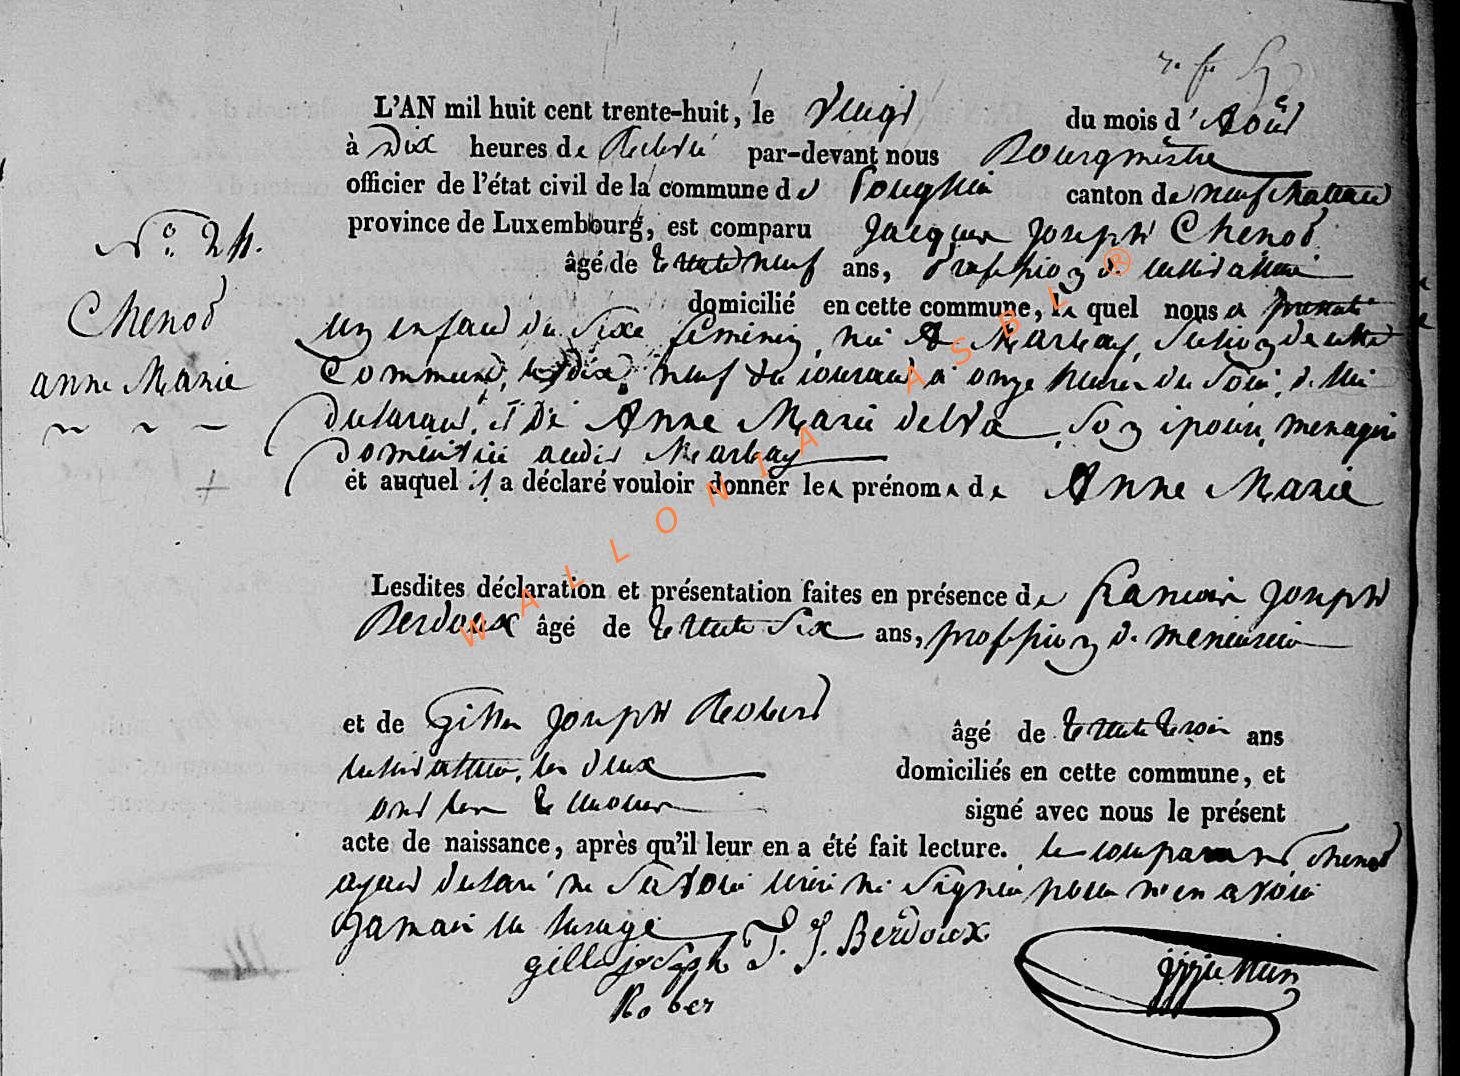 L'AN mil huit cent trente-huit, le Vingt du mois d'Août
à Dix heures de Relevé par-devant nous Bourgmestre
officier de l'état civil de la commune de canton de neufchateau
province de Luxembourg, est comparu Jacques Joseph Chenot
âgé de trente neuf ans, Profession de cultivateur
domicilié en cette commune, le quel nous a présenté
un enfant du Sexe féminin, né à Marbay, Section de cette
Commune, le dix neuf du courant à onze heures du Soir, de lui
Déclarant, et De Anne Marie delva, Son épouse, ménagère
Domiciliée audit Marbay
et auquel il a déclaré vouloir donner les prénoms de Anne Marie
Lesdites déclaration et présentation faites en présence de François Joseph
Berdoux âgé de trente Six ans, profession de menuisier
et de Gilles Joseph Robert âgé de trente trois ans
cultivateur, les deux domiciliés en cette commune, et
ont les témoins signé avec nous le présent
acte de naissance, après qu'il leur en a été fait lecture. le comparant Chenot
ayant déclaré ne Savoir écrire ni Signer pour n'en avoir
Jamais eu l'usage
gille joseph F. J. Berdoux
Rober
N.° 24.
Chenot
anne Marie
WALLONIA ASBL ®